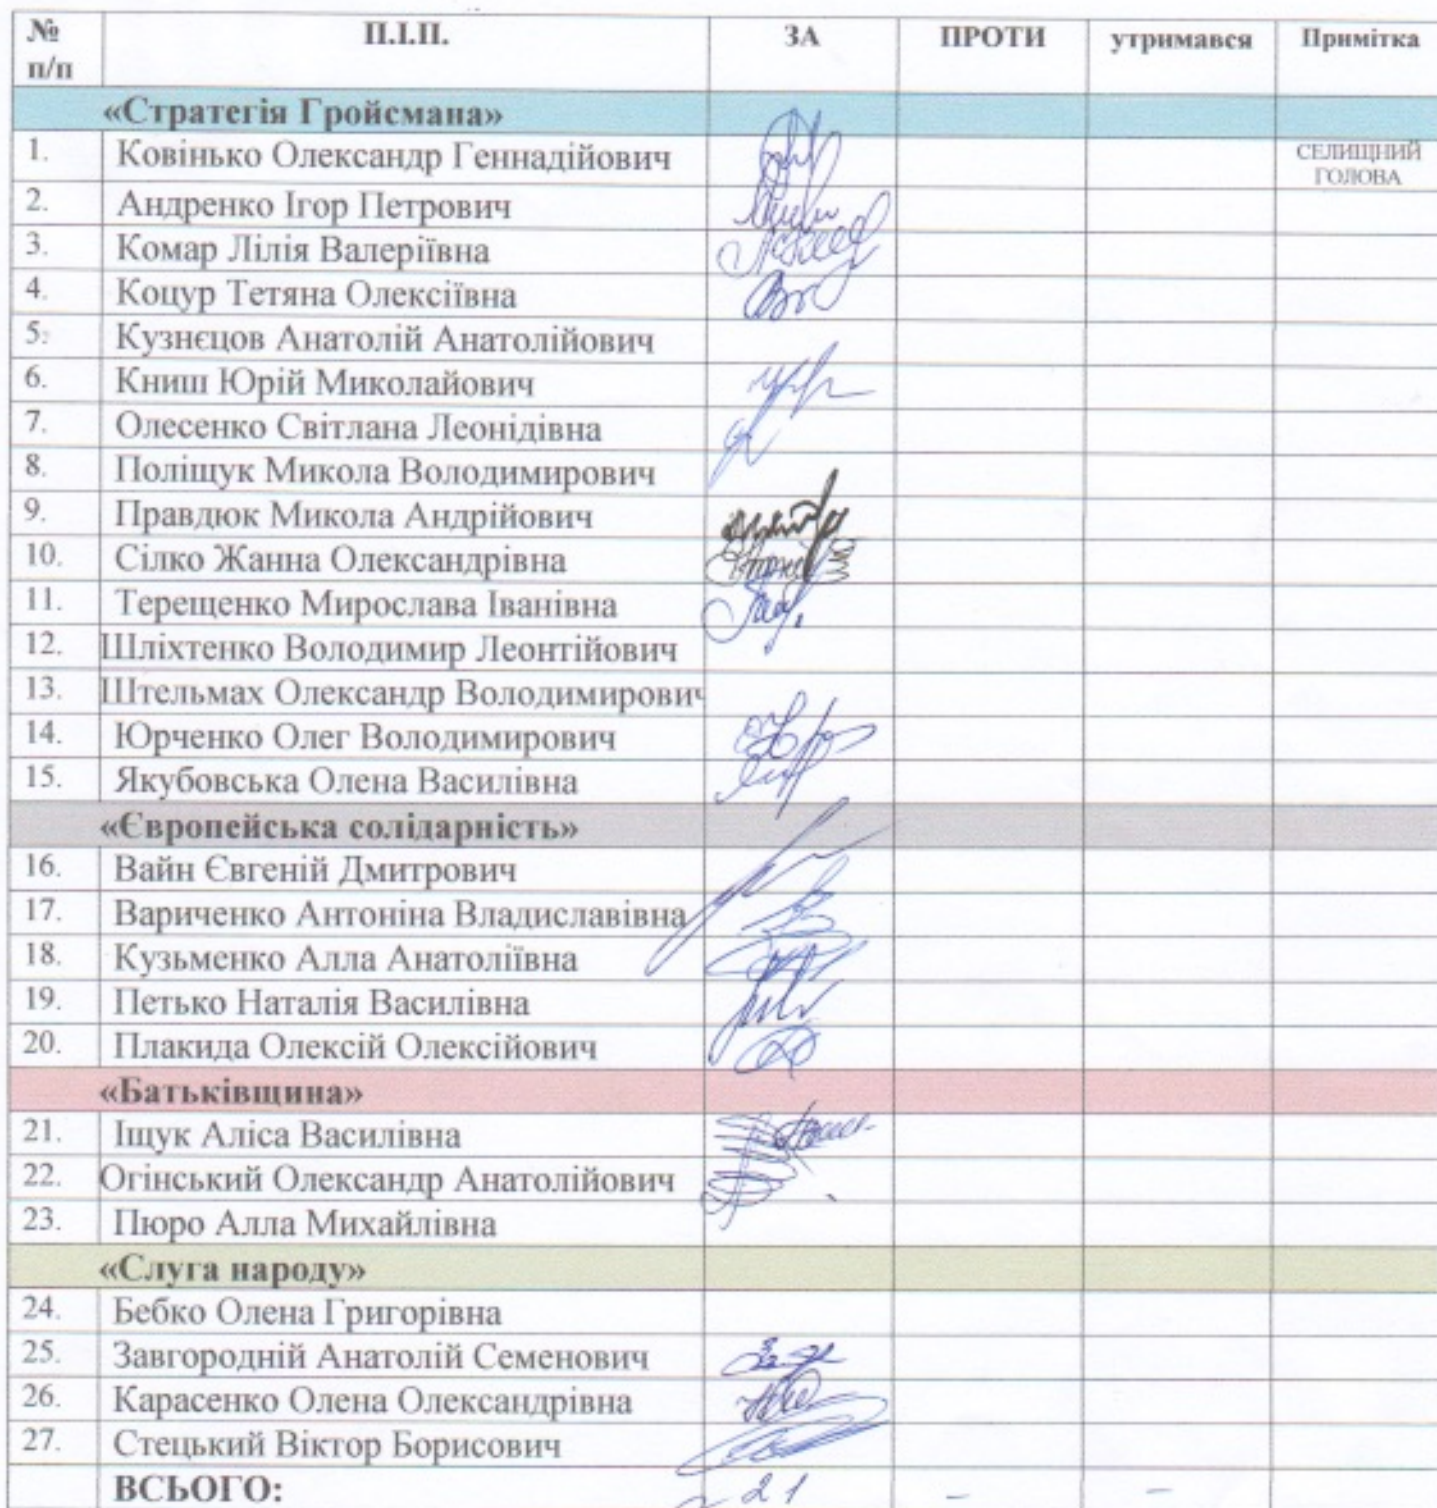 № п/п П.І.П. ЗА ПРОТИ утримався Примітка
«Стратегія Гройсмана»
1. Ковінько Олександр Геннадійович СЕЛИЩНИЙ ГОЛОВА
2. Андренко Ігор Петрович
3. Комар Лілія Валеріївна
4. Коцур Тетяна Олексіївна
5. Кузнєцов Анатолій Анатолійович
6. Книш Юрій Миколайович
7. Олесенко Світлана Леонідівна
8. Поліщук Микола Володимирович
9. Правдюк Микола Андрійович
10. Сілко Жанна Олександрівна
11. Терещенко Мирослава Іванівна
12. Шліхтенко Володимир Леонтійович
13. Штельмах Олександр Володимирович
14. Юрченко Олег Володимирович
15. Якубовська Олена Василівна
«Європейська солідарність»
16. Вайн Євгеній Дмитрович
17. Вариченко Антоніна Владиславівна
18. Кузьменко Алла Анатоліївна
19. Петько Наталія Василівна
20. Плакида Олексій Олексійович
«Батьківщина»
21. Іщук Аліса Василівна
22. Огінський Олександр Анатолійович
23. Пюро Алла Михайлівна
«Слуга народу»
24. Бебко Олена Григорівна
25. Завгородній Анатолій Семенович
26. Карасенко Олена Олександрівна
27. Стецький Віктор Борисович
ВСЬОГО: 21 - -